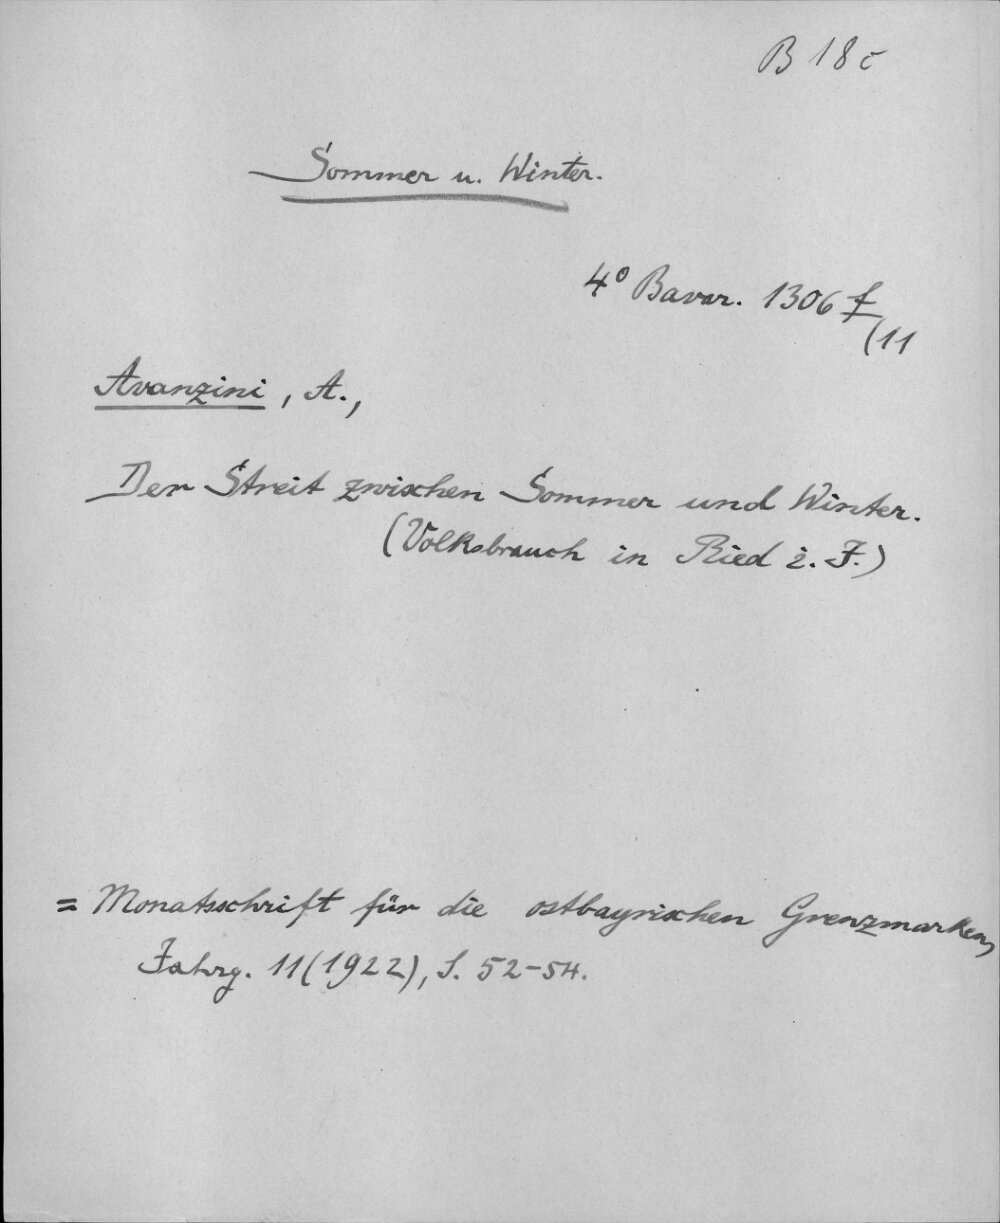 B 18 c
Sommer u. Winter.
4° Bavar. 1306 f
(11
Avanzini, A.,
Der Streit zwischen Sommer und Winter.
(Volksbrauch in Ried i. J.)
= Monatsschrift für die ostbayrischen Grenzmarken,
Jahrg. 11 (1922), S. 52-54.